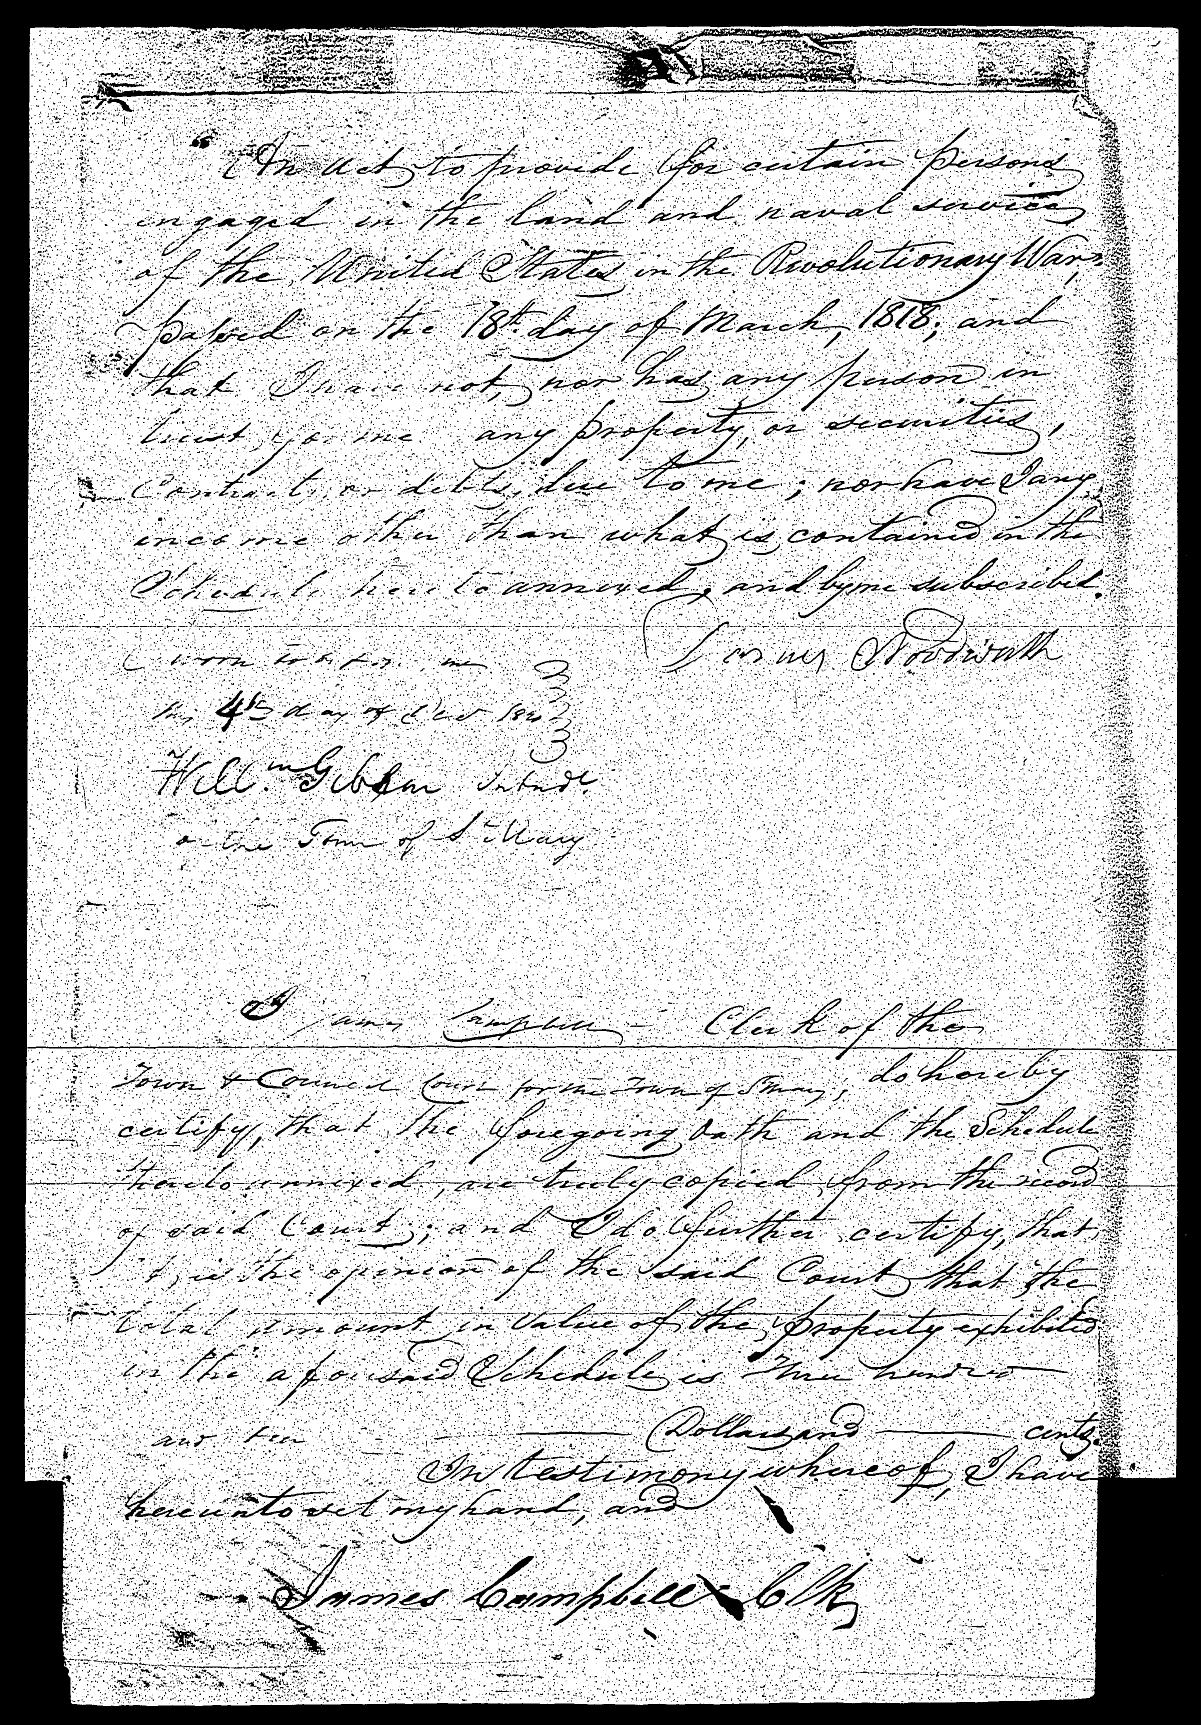 "An Act to provide for certain persons
engaged in the land and naval service
of the United States in the Revolutionary War,"
passed on the 18th day of March, 1818; and
that I have not, nor has any person in
trust for me any property, or securities,
Contracts, or debts, due to me; nor have I any
income other than what is contained in the
Schedule hereto annexed, and by me subscribed.
Woodworth
Sworn to before me
this 4th day of
Willm Gibson Intendt.
of the Town of St Mary
I James Campbell - Clerk of the
Town & Council Court for the Town of St Mary, do hereby
certify, that the foregoing Oath and the Schedule
thereto annexed, are truly copied from the record
of said Court; and I do further certify, that
it is the opinion of the said Court that the
total amount in value of the property exhibited
in the aforesaid Schedule is Three hundred
and ten Dollars and cents.
In testimony whereof, I have
hereunto set my hand, and
James Campbell Clk